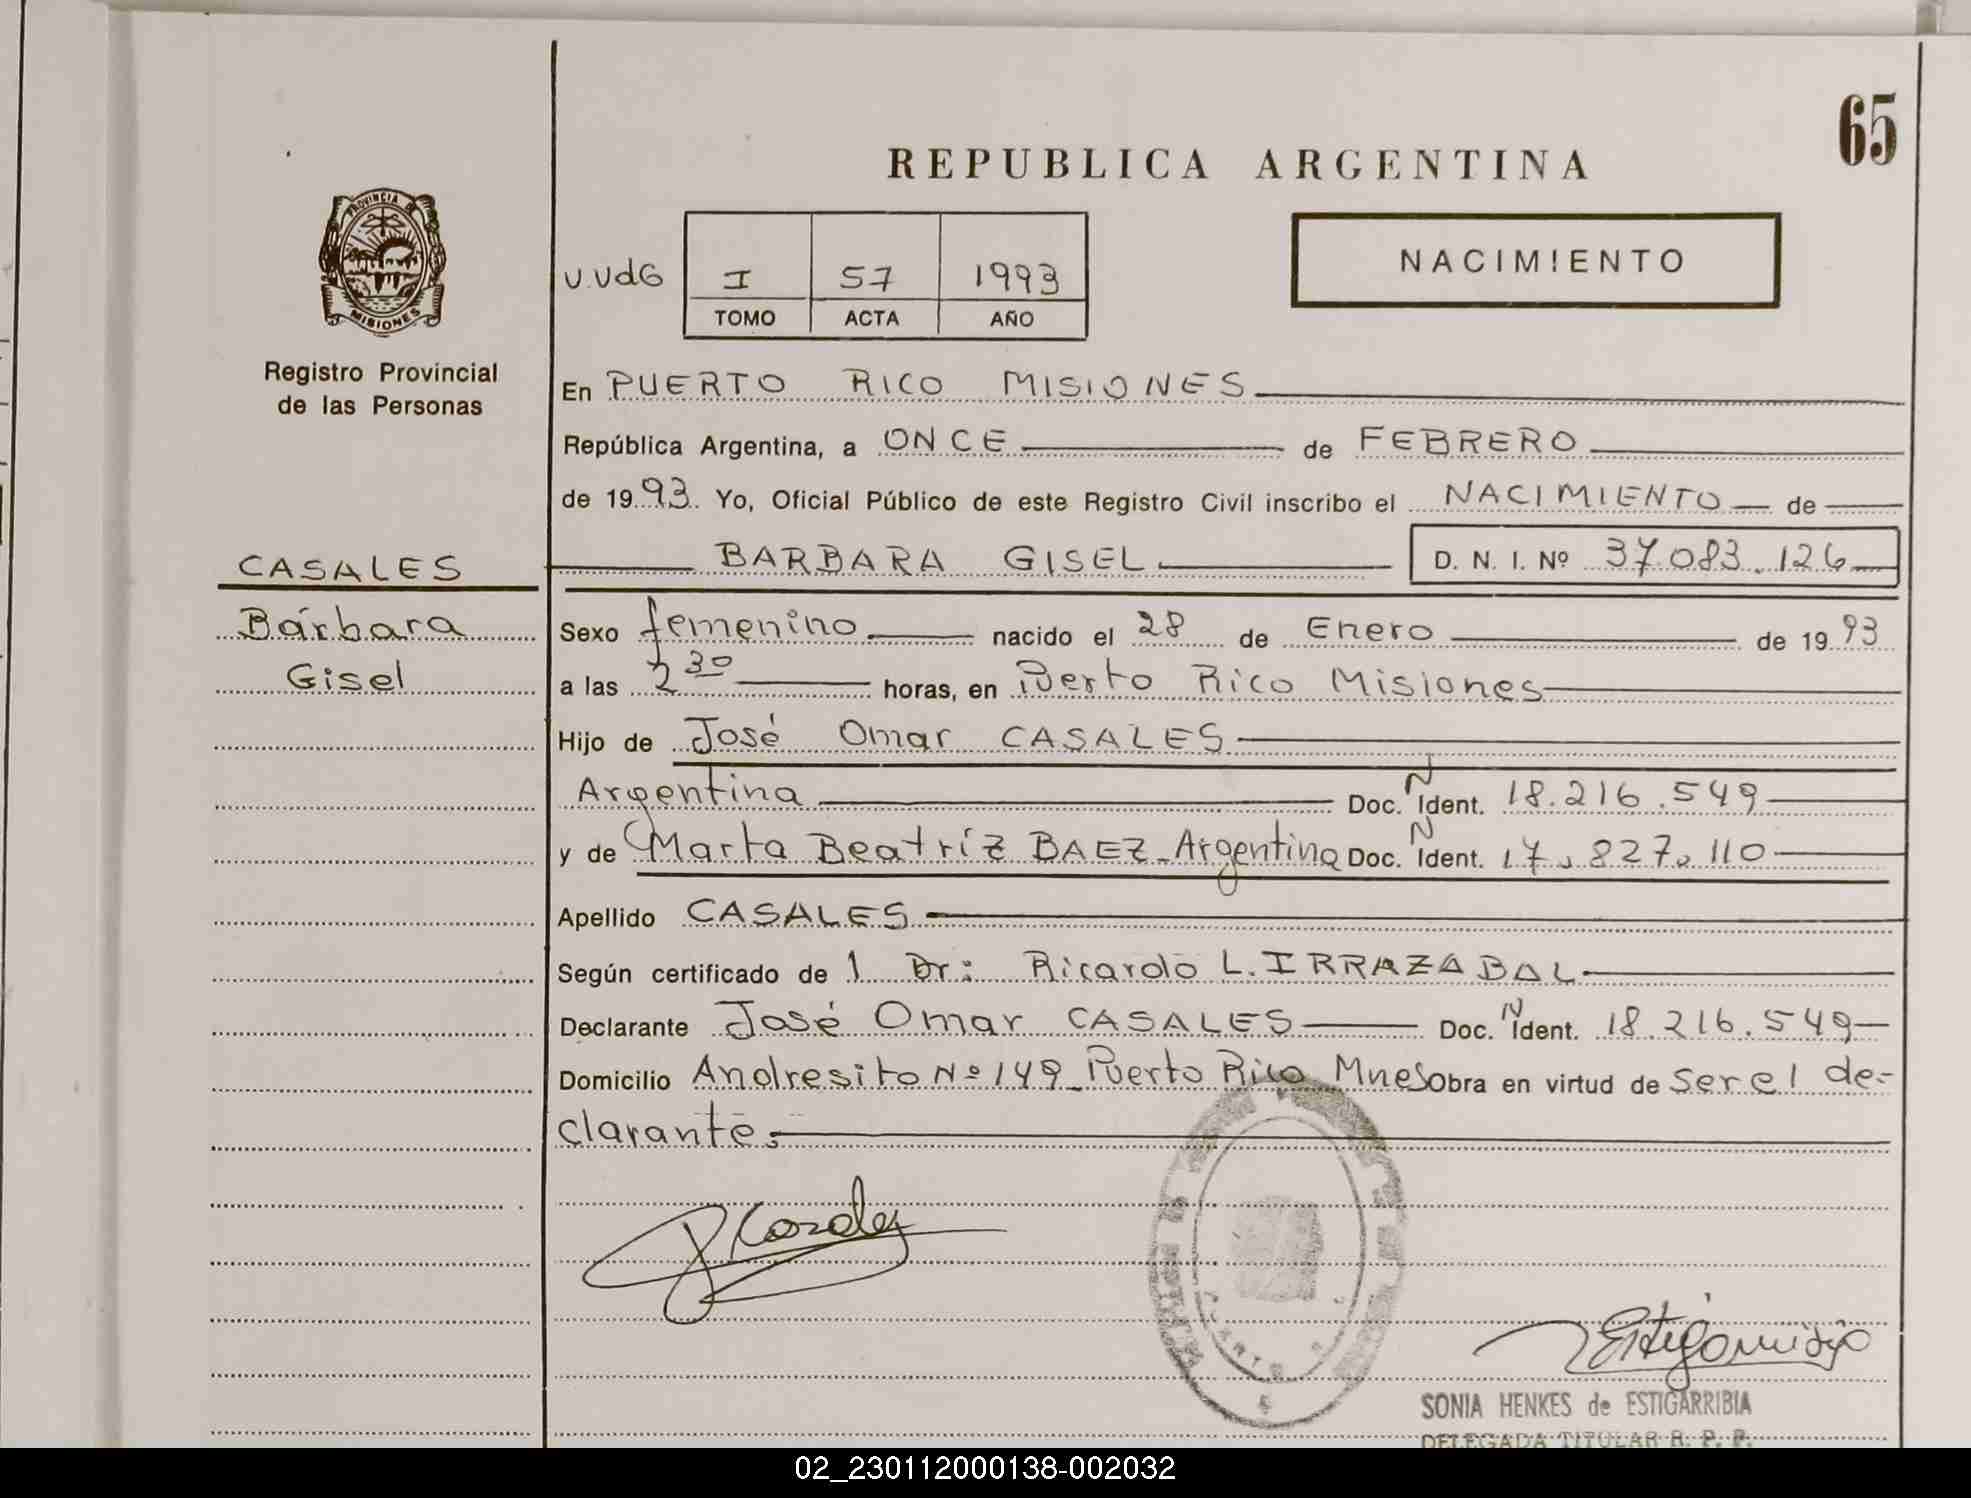 65
REPUBLICA ARGENTINA
PROVINCIA DE
MISIONES
Registro Provincial
de las Personas
U.VdG I 57 1993
TOMO ACTA AÑO
NACIMIENTO
En PUERTO RICO MISIONES
República Argentina, a ONCE de FEBRERO
de 1993. Yo, Oficial Público de este Registro Civil inscribo el NACIMIENTO de
CASALES
BARBARA GISEL D. N. I. Nº 37.083.126
Bárbara
Gisel
Sexo femenino nacido el 28 de Enero de 1993
a las 2 30 horas, en Puerto Rico Misiones
Hijo de José Omar CASALES
Argentina Doc. N Ident. 18.216.549
y de Marta Beatríz BAEZ-Argentina Doc. N Ident. 17.827.110
Apellido CASALES
Según certificado de 1 Dr: Ricardo L. IRRAZABAL
Declarante José Omar CASALES Doc. N Ident. 18.216.549
Domicilio Andresito Nº 149 Puerto Rico Mnes Obra en virtud de ser el de-
clarante.
SONIA HENKES de ESTIGARRIBIA
DELEGADA TITULAR R. P. P.
02_230112000138-002032